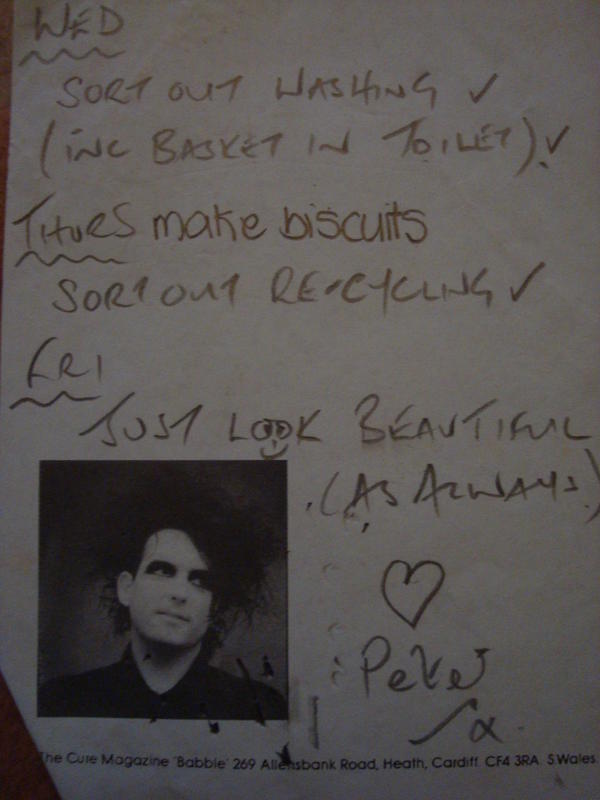 WED
SORT OUT WASHING ✓
(INC BASKET IN TOILET) ✓
THURS make biscuits
SORT OUT RE-CYCLING ✓
FRI
JUST LOOK BEAUTIFUL
(AS ALWAYS)
♡
x
The Cure Magazine 'Babble' 269 Allensbank Road, Heath, Cardiff. CF4 3RA. S.Wales.